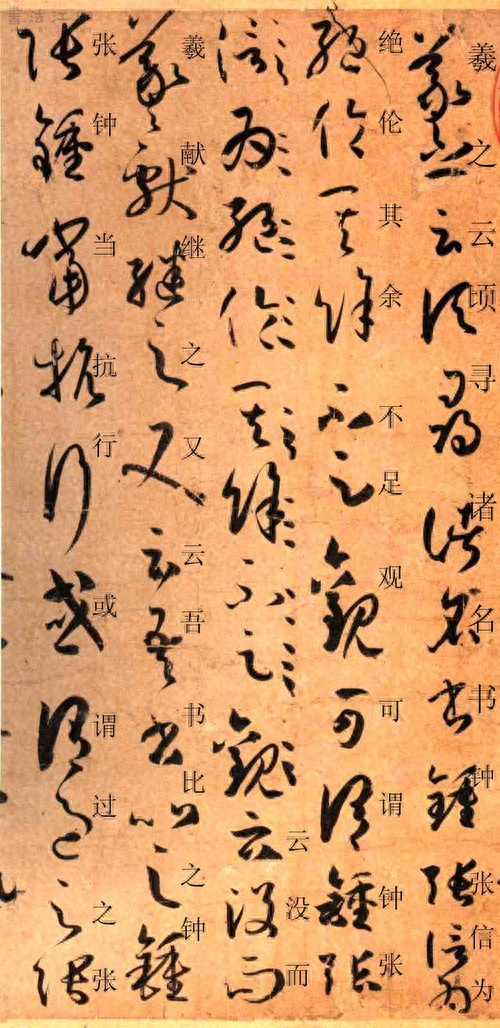 羲之云頃尋諸名書鍾張信為
羲之云顷寻诸名书钟张信为
絕倫其餘不足觀可謂鍾張
绝伦其余不足观可谓钟张
信為絕倫其餘不足觀云没而
云没而
羲獻繼之又云吾書比之鍾
羲献继之又云吾书比之钟
張鍾當抗行或謂過之張
张钟当抗行或谓过之张